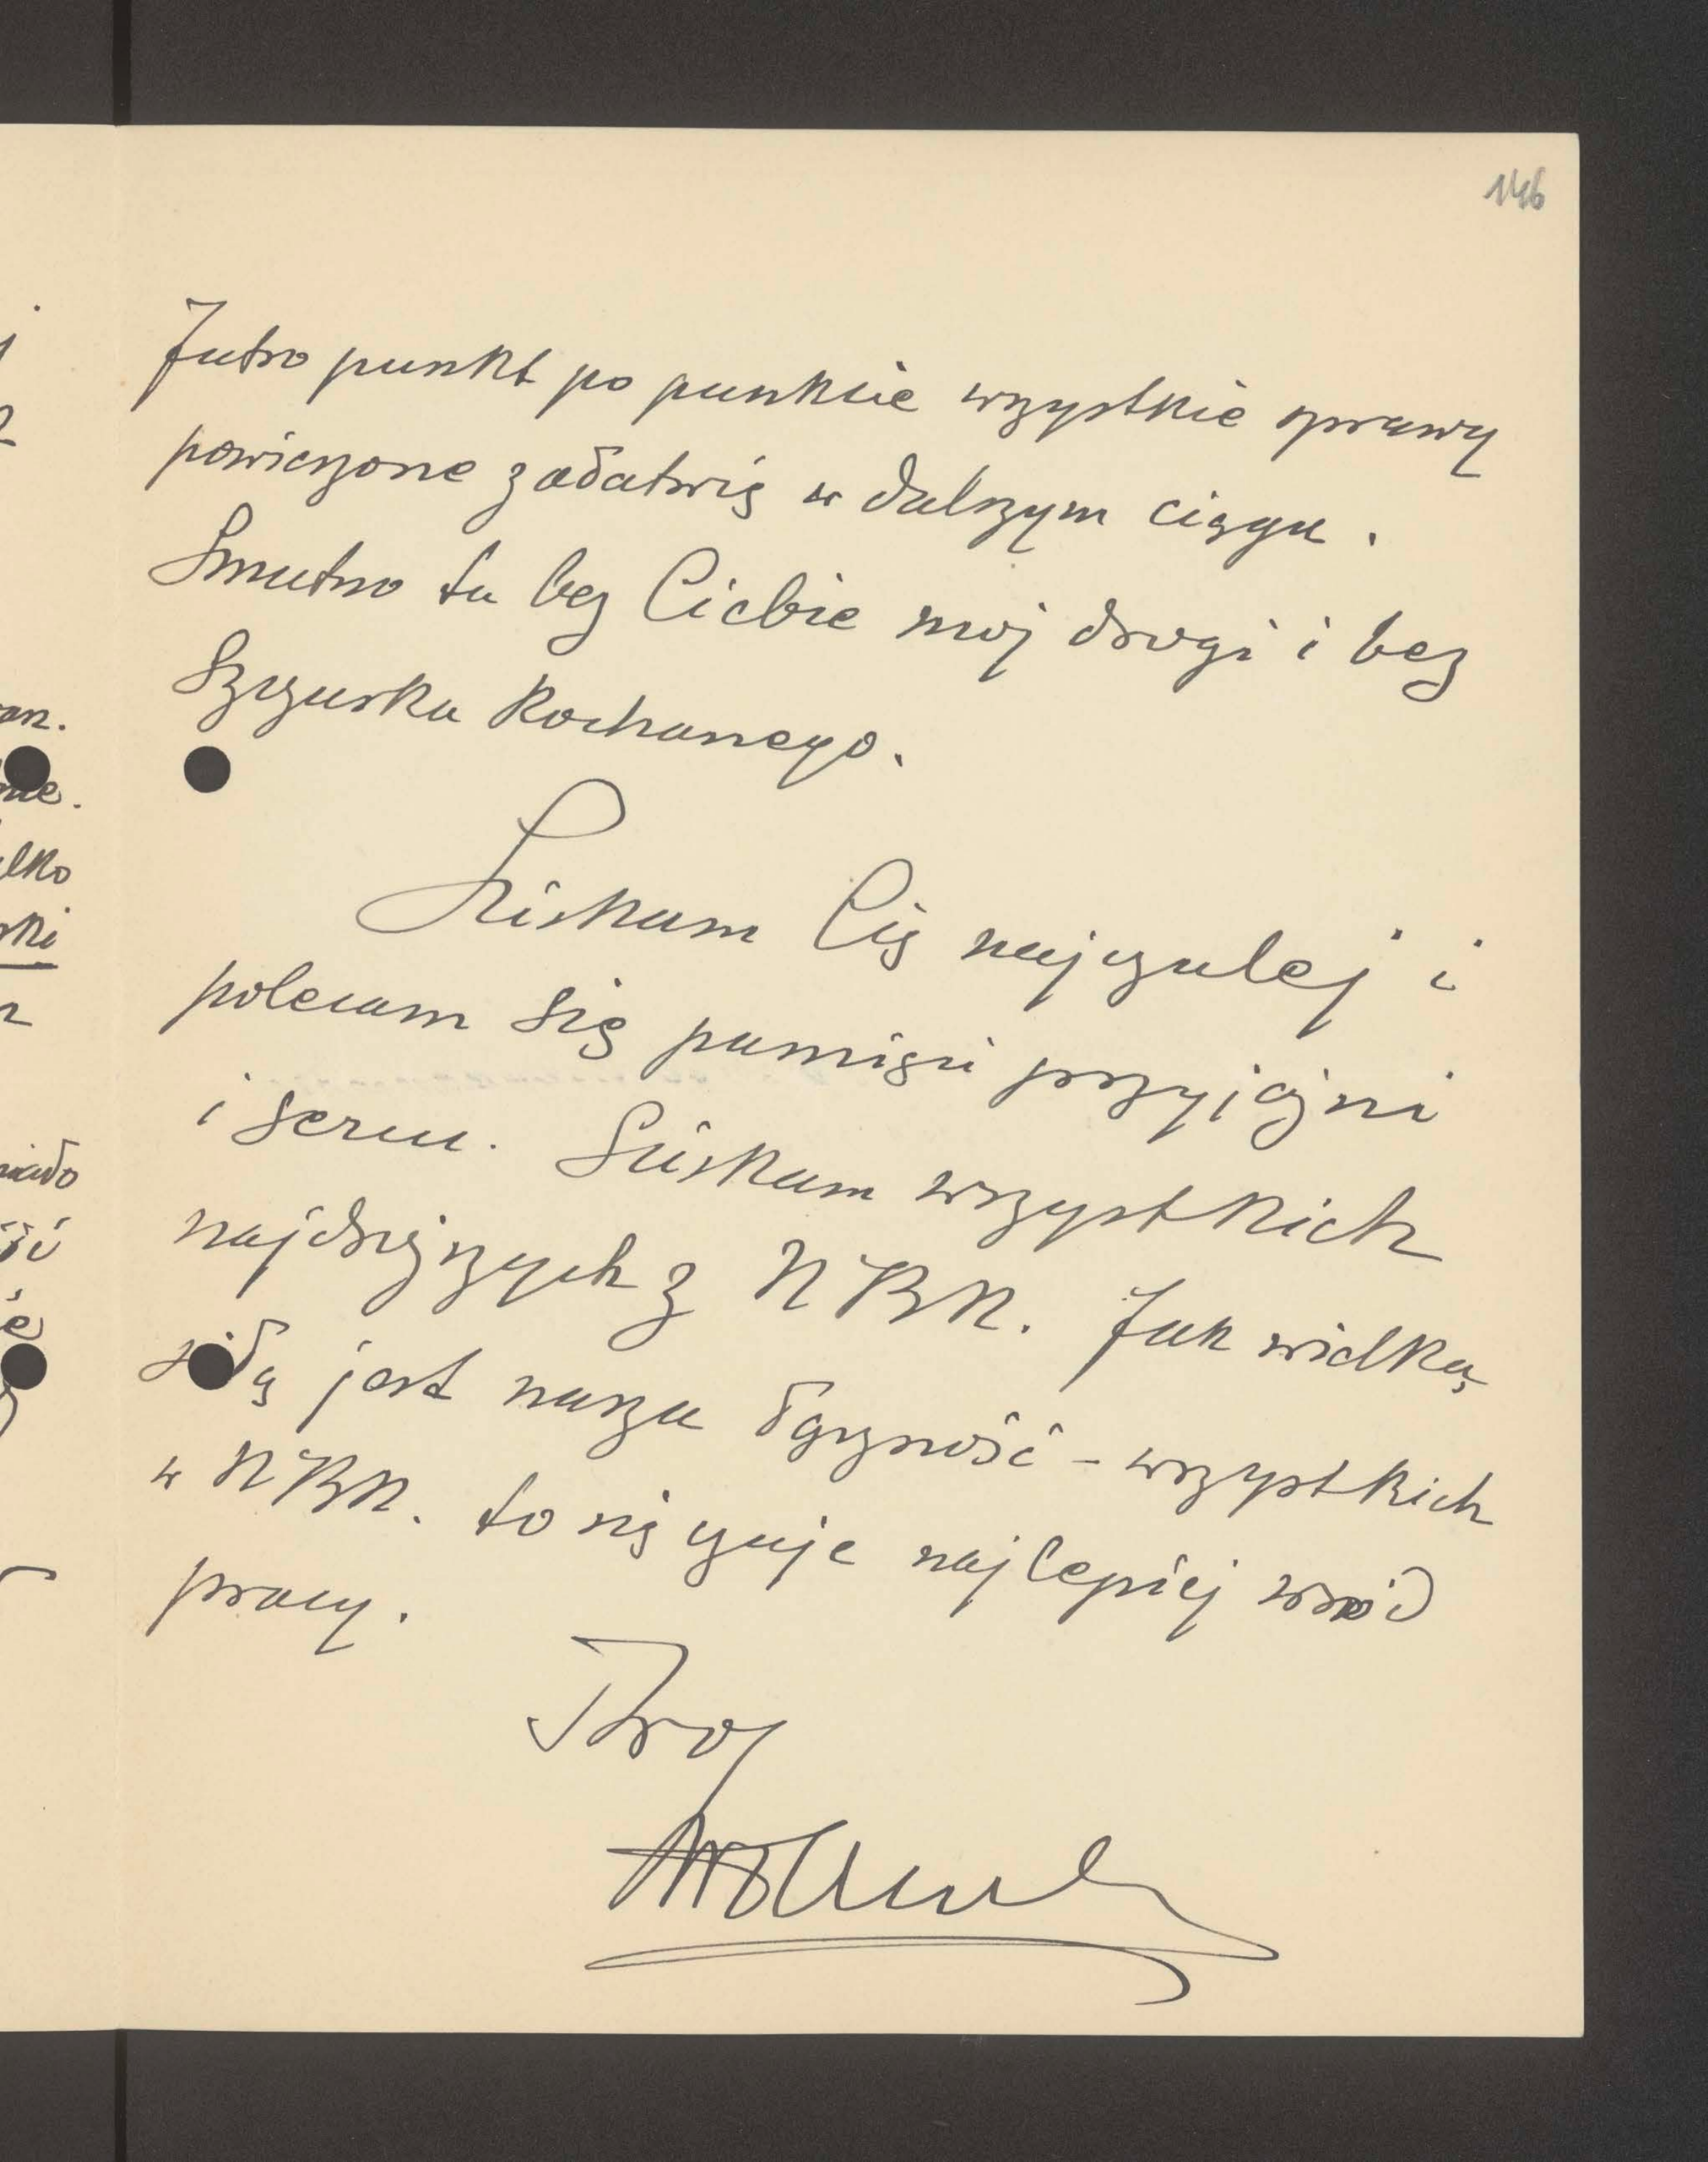 146
Jutro punkt po punkcie wszystkie sprawy
powierzone załatwię w dalszym ciągu.
Smutno tu bez Ciebie moj drogi i bez
kochanego.
Sciskam Cię najczulej i
polecam się pamięci przyjaźni
i sercu. Sciskam wszystkich
najdroższych z NKN. Jak wielką
siłą jest nasza łączność - wszystkich
w NKN. to się czuje najlepiej wśród
pracy.
Twoj
an.
ne.
lko
ski